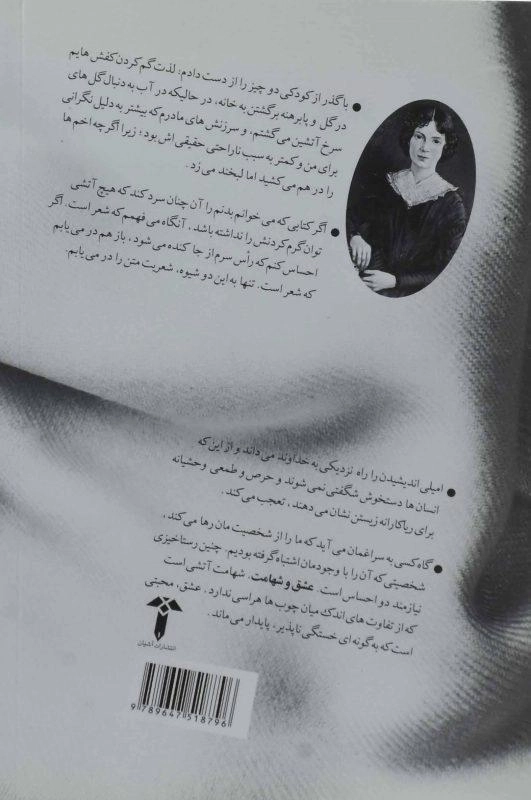 ● با گذر از کودکی دو چیز را از دست دادم: لذت گم کردن کفش هایم
در گل و پابرهنه برگشتن به خانه، در حالیکه در آب به دنبال گل های
سرخ آتشین می گشتم، و سرزنش های مادرم که بیشتر به دلیل نگرانی
برای من و کمتر به سبب ناراحتی حقیقی اش بود؛ زیرا اگرچه اخم ها
را در هم می کشید اما لبخند می زد.
● اگر کتابی که می خوانم بدنم را آن چنان سرد کند که هیچ آتشی
توان گرم کردنش را نداشته باشد، آنگاه می فهمم که شعر است. اگر
احساس کنم که رأس سرم از جا کنده می شود، باز هم در می یابم
که شعر است. تنها به این دو شیوه، شعریت متن را در می یابم.
● امیلی اندیشیدن را راه نزدیکی به خداوند می داند و از این که
انسان ها دستخوش شگفتی نمی شوند و حرص و طمعی وحشیانه
برای ریاکارانه زیستن نشان می دهند، تعجب می کند.
● گاه کسی به سراغمان می آید که ما را از شخصیت مان رها می کند،
شخصیتی که آن را با وجودمان اشتباه گرفته بودیم. چنین رستاخیزی
نیازمند دو احساس است. عشق و شهامت. شهامت آتشی است
که از تفاوت های اندک میان چوب ها هراسی ندارد. عشق، محبتی
است که به گونه ای خستگی ناپذیر، پایدار می ماند.
انتشارات آشیان
9 789647 518796